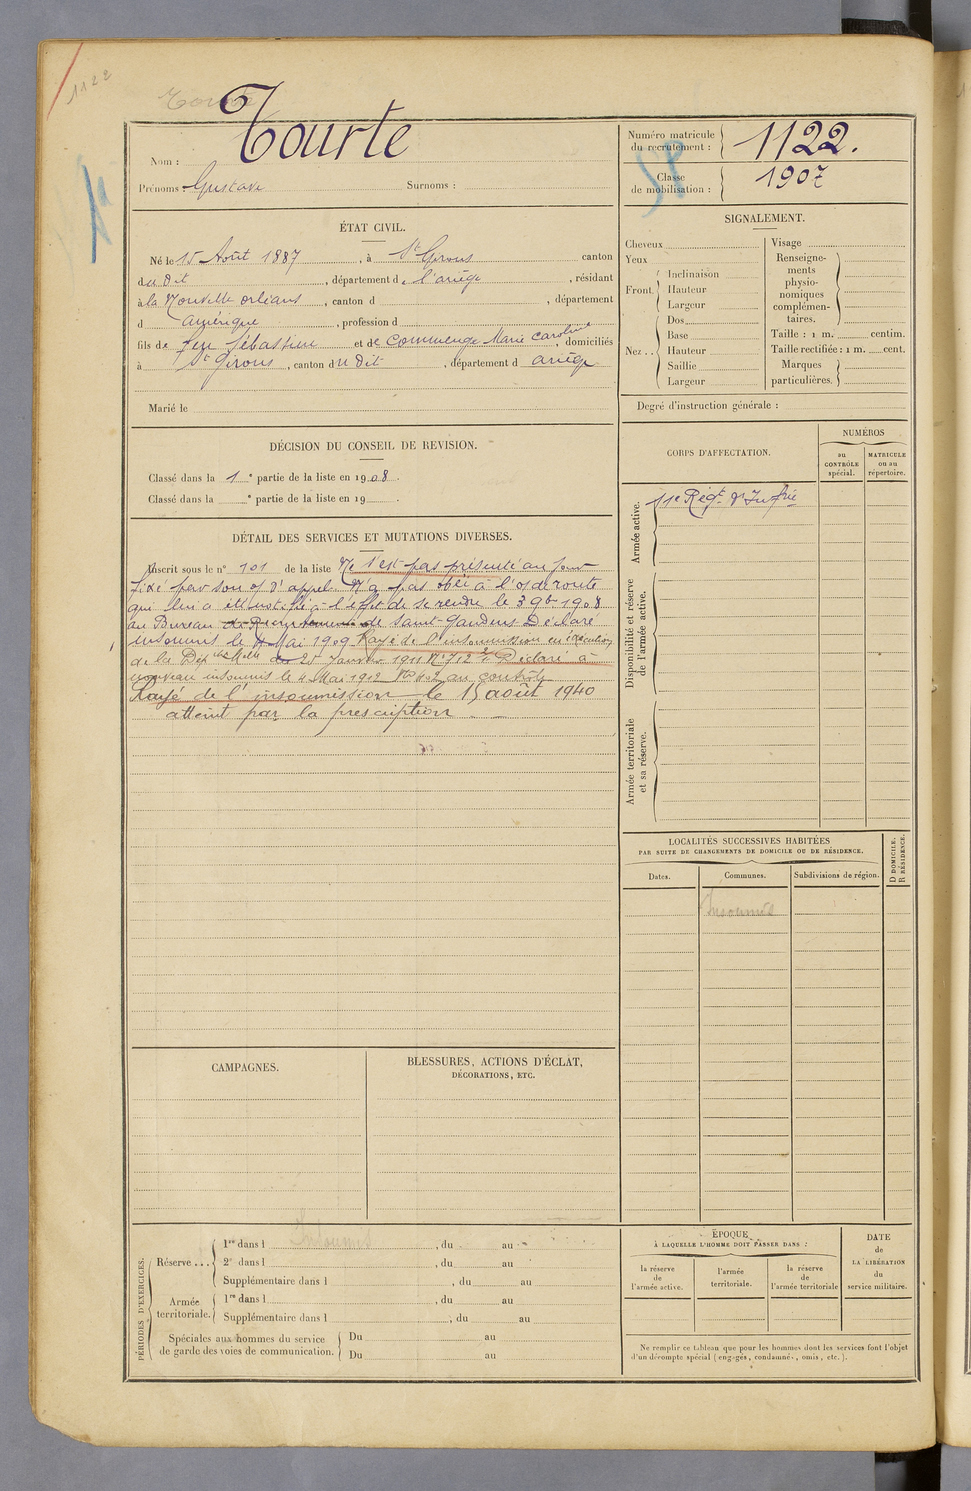 1122
Tourte
Nom : Tourte
Prénoms : Gustave Surnoms :
Numéro matricule du recrutement : 1122.
Classe de mobilisation : 1907
SP
ÉTAT CIVIL.
Né le 15 Août 1887, à St Girons canton
du dit, département de l'ariège, résidant
à la Nouvelle orléans, canton d , département
d amérique, profession d
fils de feu Sébastien et de Commenge Marie Caroline, domiciliés
à St Girons, canton du dit, département d ariège
Marié le
DÉCISION DU CONSEIL DE REVISION.
Classé dans la 1e partie de la liste en 1908.
Classé dans la e partie de la liste en 19 .
DÉTAIL DES SERVICES ET MUTATIONS DIVERSES.
Inscrit sous le n° 101 de la liste Ne s'est pas présenté au jour
fixé par son of d'appel. N'a pas obéi à l'o/ de route
qui lui a été notifié à l'effet de se rendre le 3 9b 1908
au Bureau de Recrutement de Saint-Gaudens Déclaré
insoumis le 4 Mai 1909 Rayé de l'insoumission en exécution
de la Dép che Melle du 25 Janvier 1911 N° 712 Déclaré à
nouveau insoumis le 4 Mai 1912 au contrôle
Rayé de l'insoumission le 15 août 1940
atteint par la prescription
SIGNALEMENT.
Cheveux
Yeux
Front. Inclinaison
Hauteur
Largeur
Nez . . Dos
Base
Hauteur
Saillie
Largeur
Visage
Renseignements physionomiques complémentaires.
Taille : 1 m. centim.
Taille rectifiée : 1 m. cent.
Marques particulières.
Degré d'instruction générale :
CORPS D'AFFECTATION.
NUMÉROS
au CONTRÔLE spécial.
MATRICULE ou au répertoire.
Armée active.
11e Régt d'Infrie
Disponibilité et réserve de l'armée active.
Armée territoriale et sa réserve.
LOCALITÉS SUCCESSIVES HABITÉES
PAR SUITE DE CHANGEMENTS DE DOMICILE OU DE RÉSIDENCE.
Dates. Communes. Subdivisions de région.
D DOMICILE. R RÉSIDENCE.
Insoumis
CAMPAGNES.
BLESSURES, ACTIONS D'ÉCLAT,
DÉCORATIONS, ETC.
PÉRIODES D'EXERCICES.
Réserve . . . 1re dans l Insoumis, du au
2e dans l , du au
Supplémentaire dans l , du au
Armée territoriale. 1re dans l , du au
Supplémentaire dans l , du au
Spéciales aux hommes du service
de garde des voies de communication.
Du au
Du au
ÉPOQUE
À LAQUELLE L'HOMME DOIT PASSER DANS :
la réserve de l'armée active.
l'armée territoriale.
la réserve de l'armée territoriale
DATE de LA LIBÉRATION du service militaire.
Ne remplir ce tableau que pour les hommes dont les services font l'objet
d'un décompte spécial (engagés, condamnés, omis, etc.).